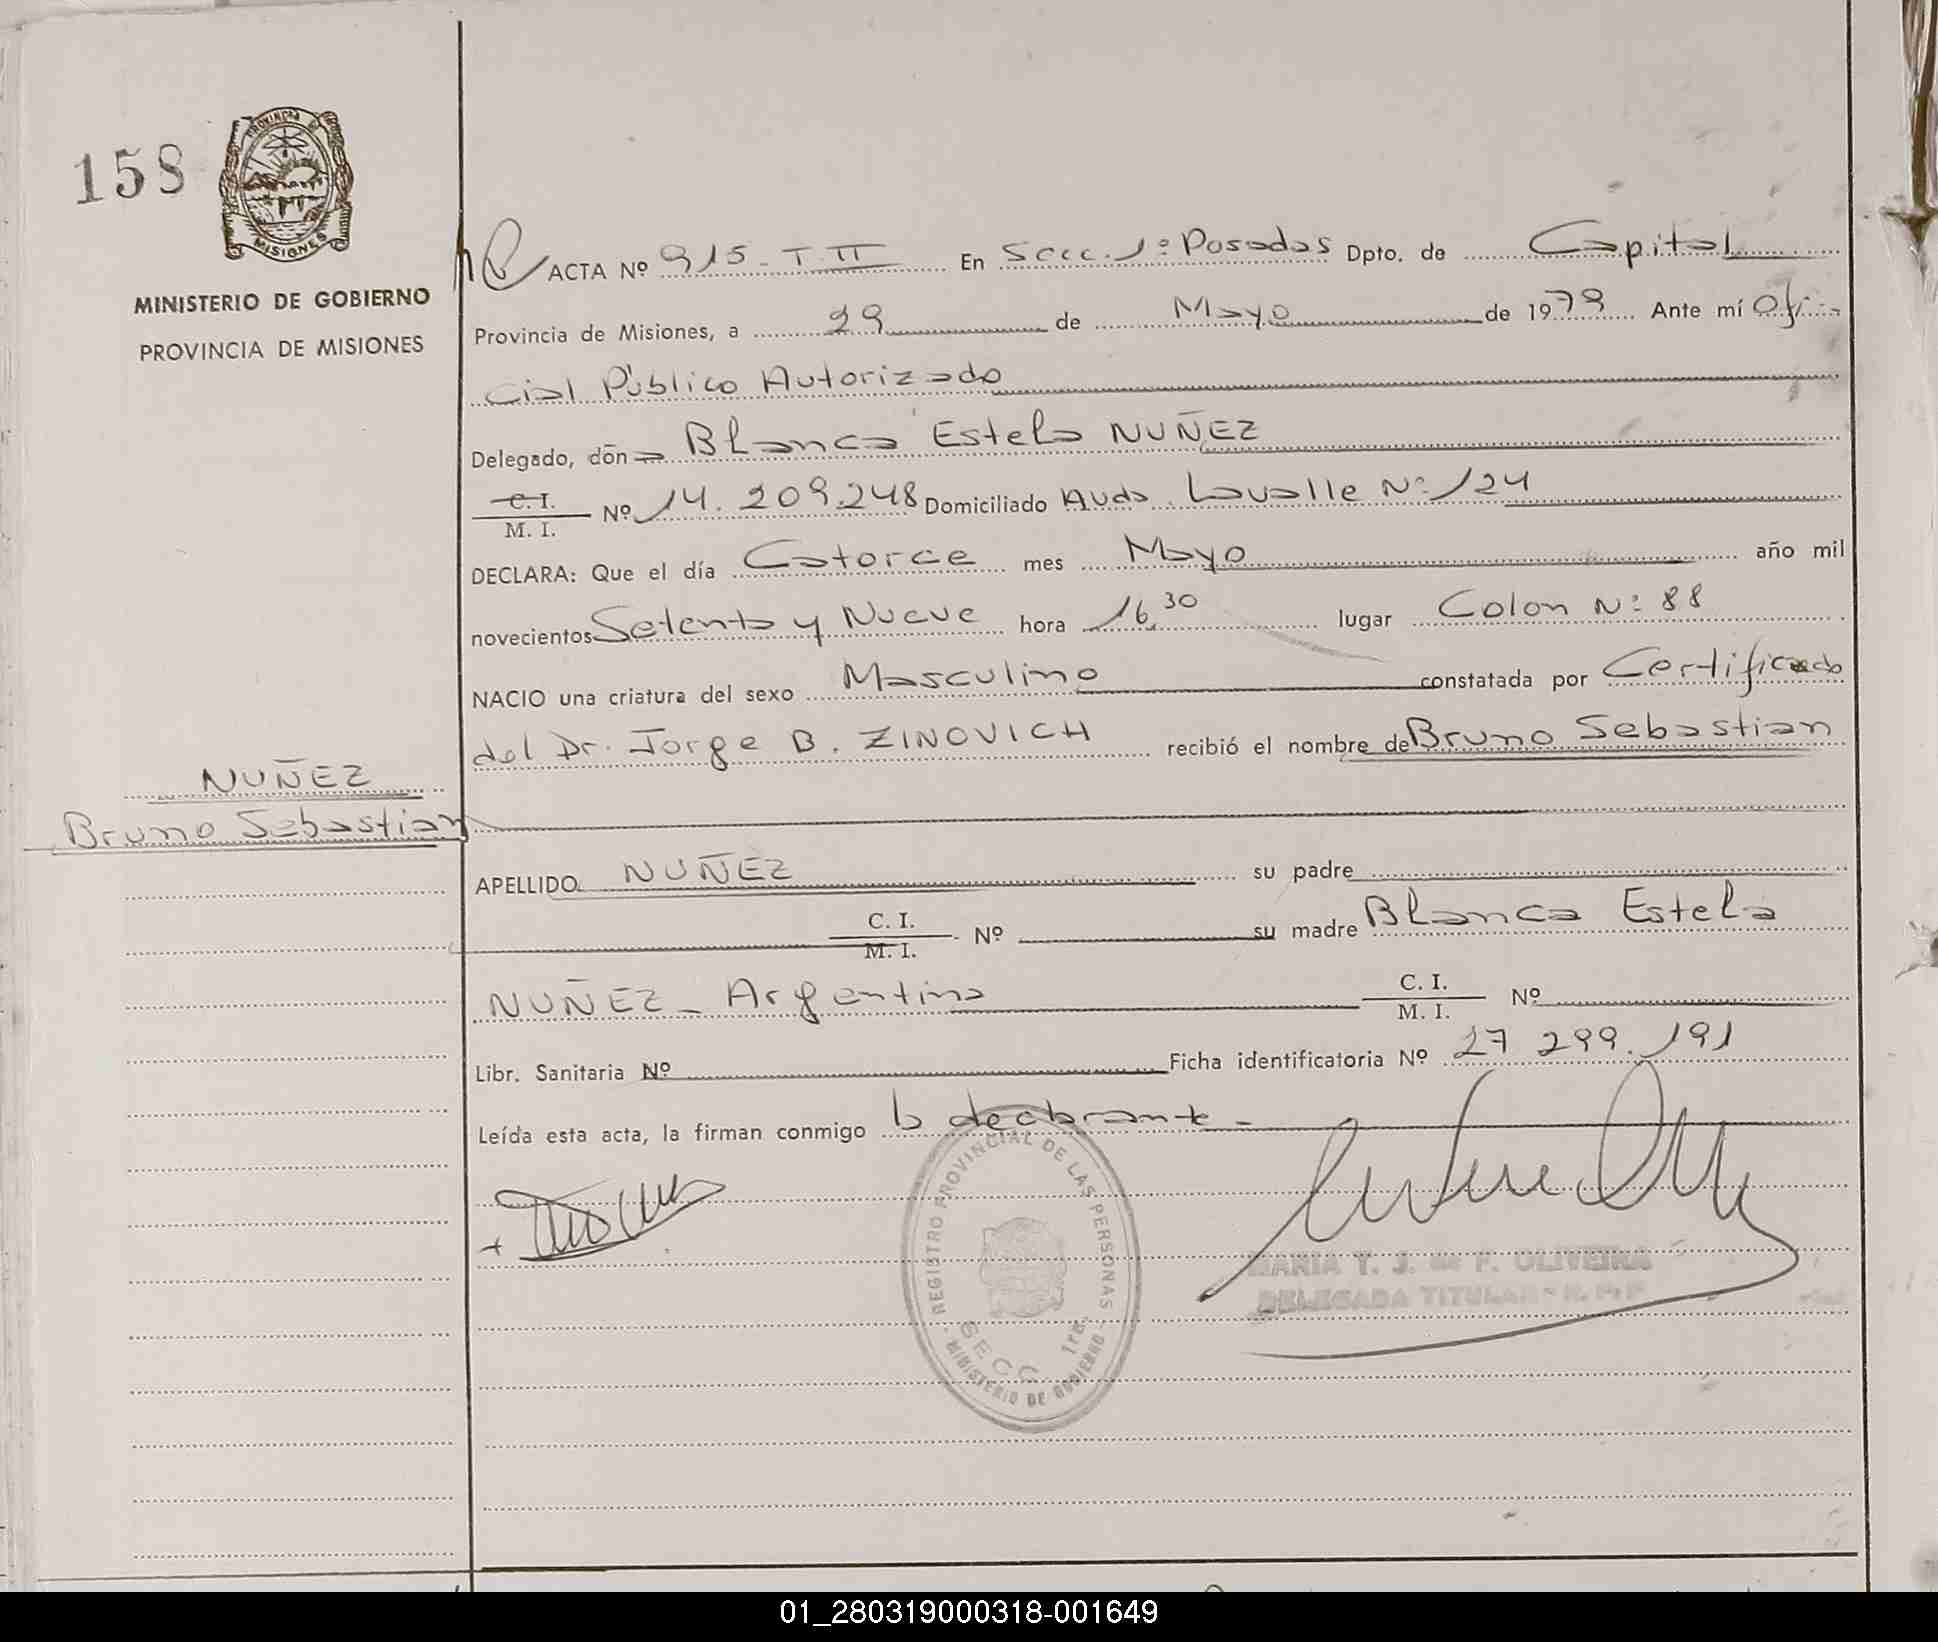 158
PROVINCIA DE
MISIONES
MINISTERIO DE GOBIERNO
PROVINCIA DE MISIONES
ACTA Nº 915 - T. II En Secc. 1º Posadas Dpto. de Capital
Provincia de Misiones, a 29 de Mayo de 1979 Ante mí Ofi-
cial Público Autorizado
Delegado, don a Blanca Estela NUÑEZ
C. I.
M. I. Nº 14.209.248 Domiciliado Avda. Lavalle Nº 124
DECLARA: Que el día Catorce mes Mayo año mil
novecientos Setenta y Nueve hora 16,30 lugar Colon Nº 88
NACIO una criatura del sexo Masculino constatada por Certificado
del Dr. Jorge B. ZINOVICH recibió el nombre de Bruno Sebastian
NUÑEZ
Bruno Sebastian
APELLIDO NUÑEZ su padre
C. I.
M. I. Nº su madre Blanca Estela
NUÑEZ - Argentina C. I.
M. I. Nº
Libr. Sanitaria Nº Ficha identificatoria Nº 27 299.191
Leída esta acta, la firman conmigo la declarante -
REGISTRO PROVINCIAL DE LAS PERSONAS
SECC. 1ra.
MINISTERIO DE GOBIERNO
MARIA Y. J. de F. OLIVEIRA
DELEGADA TITULAR - R. P. P.
01_280319000318-001649